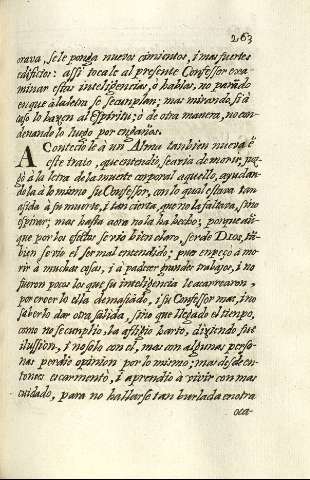 263
orava, se le ponga nuevos cimientos, i mas fuertes
edificios: assi toca le al presente Confessor exa-
minar estas inteligencias, o hablas, no parãdo
en que à la letra se se cunplan; mas mirando, si à
caso lo hazen al Espiritu; ò de otra manera, no con-
denando lo luego por engaños.
Acontecio le à un Alma tambien nueva ẽ
este trato, que entendiò se avia de morir; 
à la letra de la muerte corporal aquello, ayudan-
dela à lo mismo su Confessor, con lo qual estuvo tan
asida à su muerte, i tan cierta, que no la faltava, sino
espirar; mas hasta aora no la ha hecho; porque aũ-
que por los efetos se vio bien claro, ser de Dios, tã-
bien se vio el ser mal entendido; pues enpeçò à mo-
rir à muchas cosas, i à padecer grandes trabajos, i no
fueron pocos los que su inteligencia le acarrearon,
por creer lo ella demasiado, i su Confessor mas, i no
saberlo dar otra salida, sino que llegado el tienpo,
como no se cunplio, la afligio harto, diziendo fue
ilussion, i no solo con el, mas con algunas perso-
nas perdio opinion por lo mismo; mas desde en-
tonces escarmentò, i aprendiò à vivir con mas
cuidado, para no hallarse tan burlada en otra
oca-